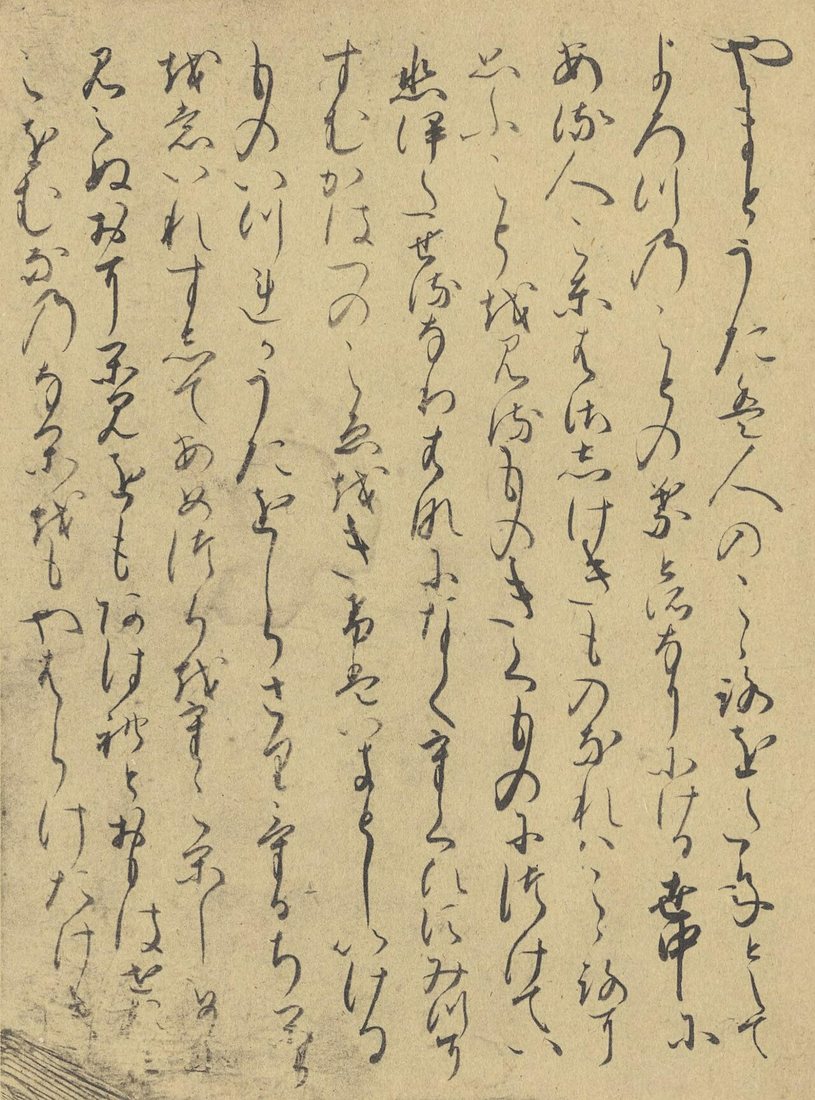 やまとうたは人のこゝろをたねとして
よろつのことの葉とそなりにける世中に
ある人ことわさしけきものなれはこゝろに
思ふことを見るものきくものにつけてい
ひいたせるなりはなになくうくひすみつに
すむかはつのこゑをきけはいきとしいける
ものいつれかうたをよまさりけるちから
をもいれすしてあめつちをうこかしめに
見えぬおにかみをもあはれとおもはせ
こをむなのなかをもやはらけたけき